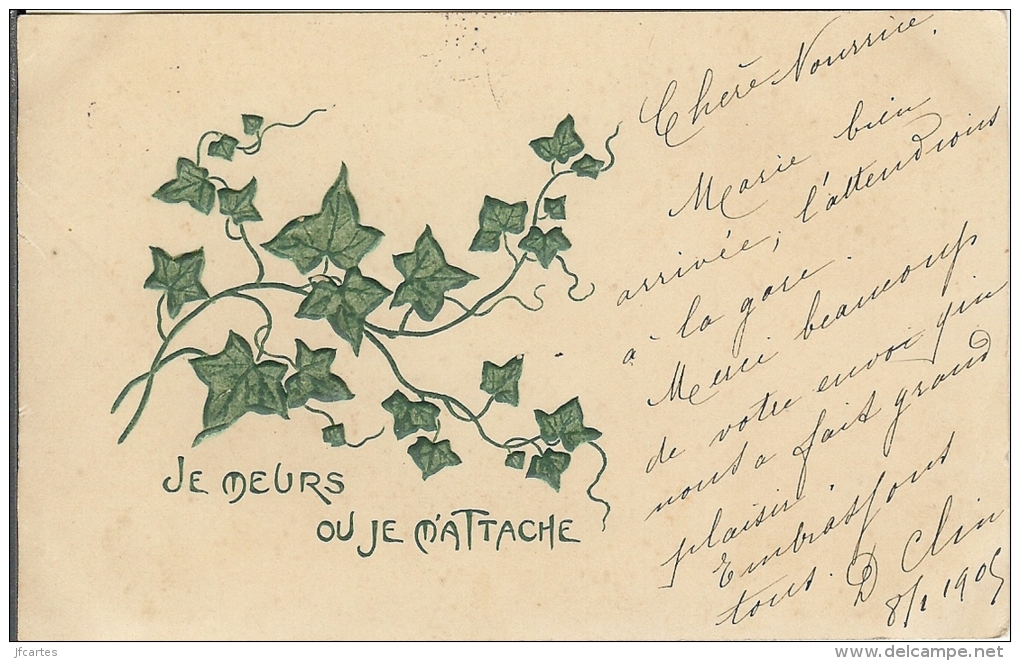 JE MEURS
OU JE M'ATTACHE
Chère Nourrice,
Marie bien
arrivée, l'attendions
à la gare.
Merci beaucoup
de votre envoi qui
nous a fait grand
plaisir.
Embrassons
tous. D Clin
8/1 1905
jfcartes
www.delcampe.net